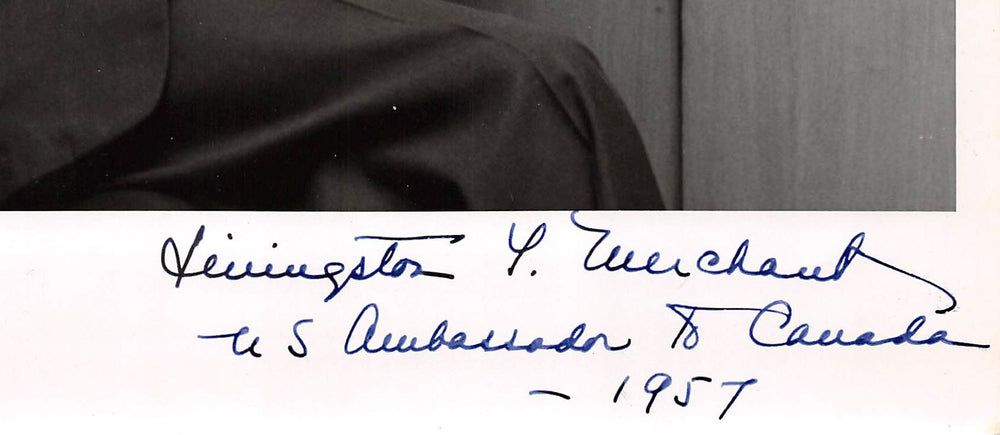 Livingston T. Merchant
US Ambassador to Canada
- 1957